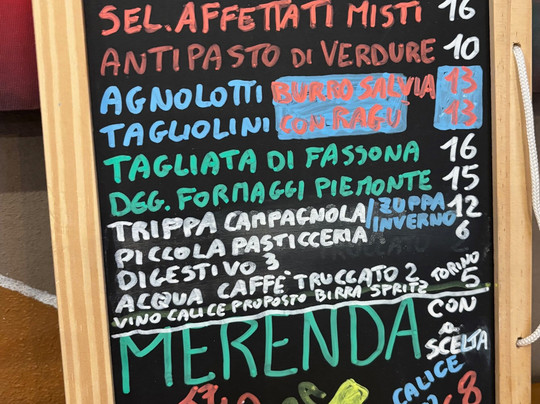 SEL. AFFETTATI MISTI 16
ANTIPASTO DI VERDURE 10
AGNOLOTTI BURRO SALVIA 13
TAGLIOLINI CON RAGÙ 13
TAGLIATA DI FASSONA 16
DEG. FORMAGGI PIEMONTE 15
TRIPPA CAMPAGNOLA/ZUPPA INVERNO 12
PICCOLA PASTICCERIA 6
DIGESTIVO 3
ACQUA CAFFÈ TRUCCATO 2
VINO CALICE PROPOSTO BIRRA SPRITZ TORINO 5
MERENDA CON
A
SCELTA
CALICE
8